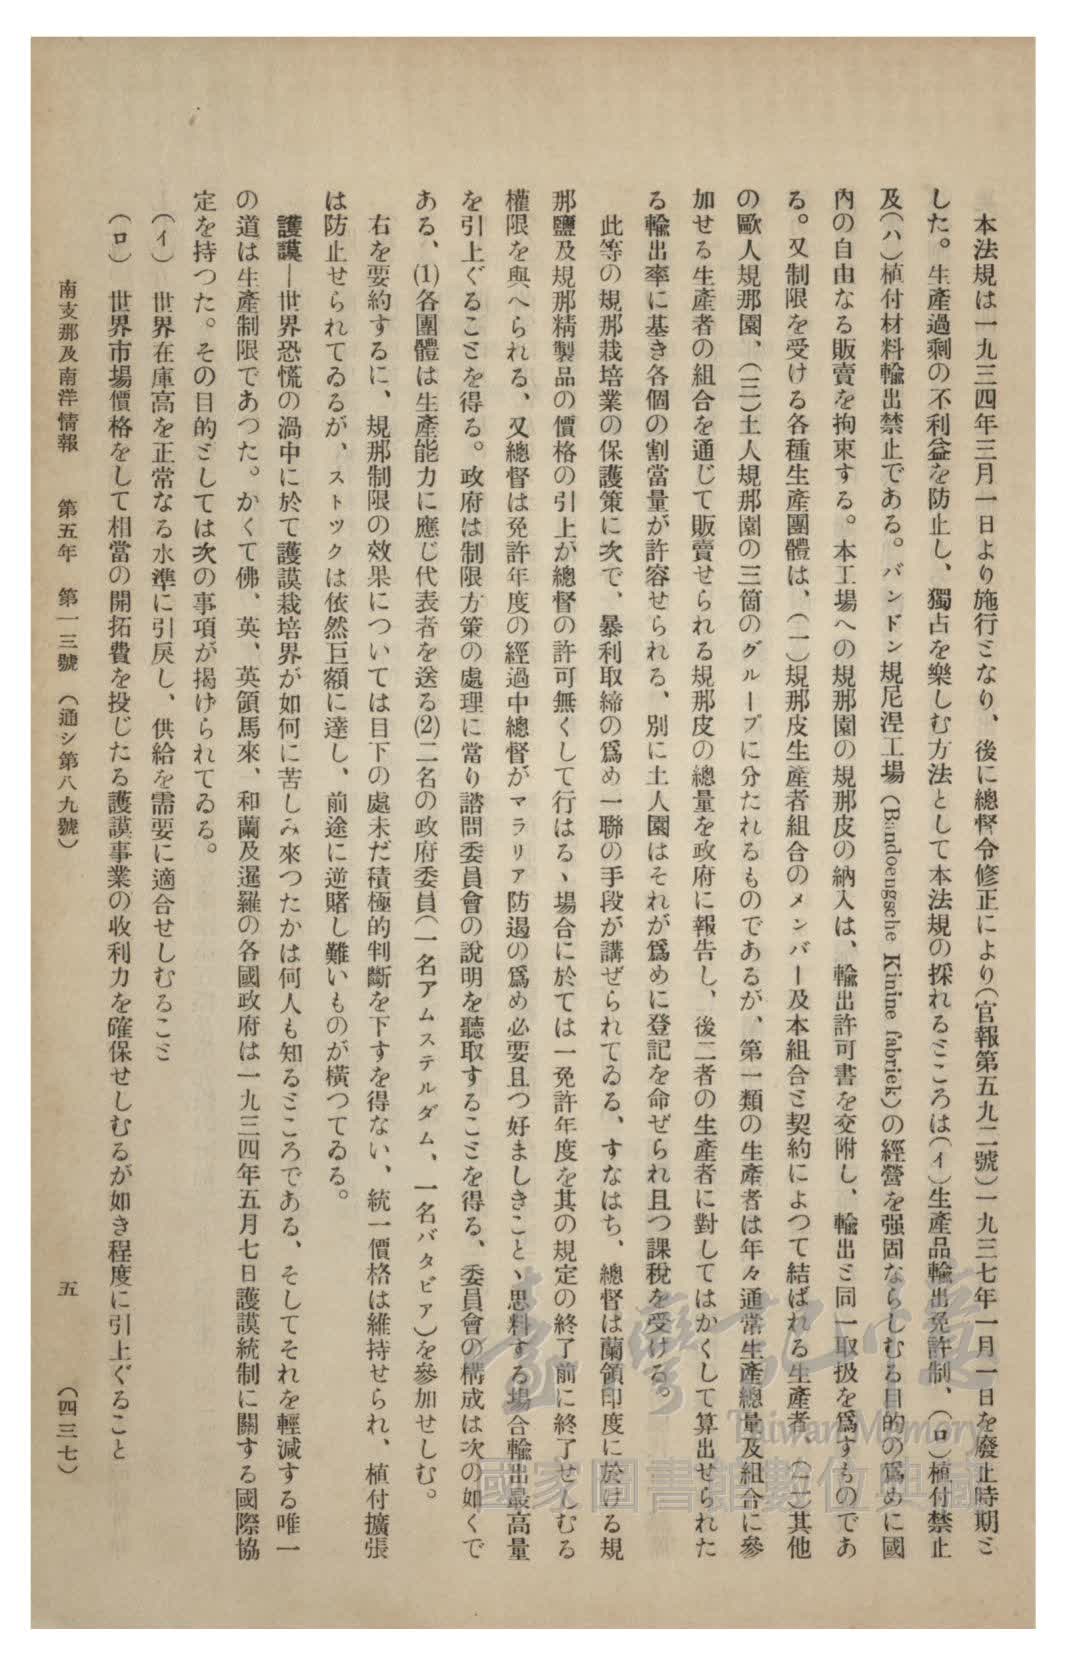 本法規は一九三四年三月一日より施行となり、後に總督令修正により(官報第五九二號)一九三七年一月一日を廢止時期と
した。生產過剩の不利益を防止し、獨占を樂しむ方法として本法規の採れるところは(イ)生產品輸出免許制、(ロ)植付禁止
及(ハ)植付材料輸出禁止である。バンドン規尼涅工場(Bandoengsche Kinine fabriek)の經營を强固ならしむる目的の爲めに國
內の自由なる販賣を拘束する。本工場への規那園の規那皮の納入は、輸出許可書を交附し、輸出と同一取扱を爲すものであ
る。又制限を受ける各種生產團體は、(一)規那皮生產者組合のメンバー及本組合と契約によつて結ばれる生產者、(二)其他
の歐人規那園、(三)土人規那園の三箇のグループに分たれるものであるが、第一類の生產者は年々通常生產總量及組合に參
加せる生產者の組合を通じて販賣せられる規那皮の總量を政府に報告し、後二者の生產者に對してはかくして算出せられた
る輸出率に基き各個の割當量が許容せられる、別に土人園はそれが爲めに登記を命ぜられ且つ課稅を受ける。
此等の規那栽培業の保護策に次で、暴利取締の爲め一聯の手段が講ぜられてゐる、すなはち、總督は蘭領印度に於ける規
那鹽及規那精製品の價格の引上が總督の許可無くして行はるゝ場合に於ては一免許年度を其の規定の終了前に終了せしむる
權限を與へられる、又總督は免許年度の經過中總督がマラリア防遏の爲め必要且つ好ましきことゝ思料する場合輸出最高量
を引上ぐることを得る。政府は制限方策の處理に當り諮問委員會の說明を聽取することを得る、委員會の構成は次の如くで
ある、(1)各團體は生產能力に應じ代表者を送る(2)二名の政府委員(一名アムステルダム、一名バタビア)を參加せしむ。
右を要約するに、規那制限の效果については目下の處未だ積極的判斷を下すを得ない、統一價格は維持せられ、植付擴張
は防止せられてゐるが、ストツクは依然巨額に達し、前途に逆賭し難いものが橫つてゐる。
護謨—世界恐慌の渦中に於て護謨栽培界が如何に苦しみ來つたかは何人も知るところである、そしてそれを輕減する唯一
の道は生產制限であつた。かくて佛、英、英領馬來、和蘭及暹羅の各國政府は一九三四年五月七日護謨統制に關する國際協
定を持つた。その目的としては次の事項が揭げられてゐる。
(イ) 世界在庫高を正常なる水準に引戾し、供給を需要に適合せしむること
(ロ) 世界市場價格をして相當の開拓費を投じたる護謨事業の收利力を確保せしむるが如き程度に引上ぐること
南支那及南洋情報 第五年 第一三號 (通シ第八九號) 五 (四三七)
臺灣記憶
Taiwan Memory
國家圖書館數位典藏